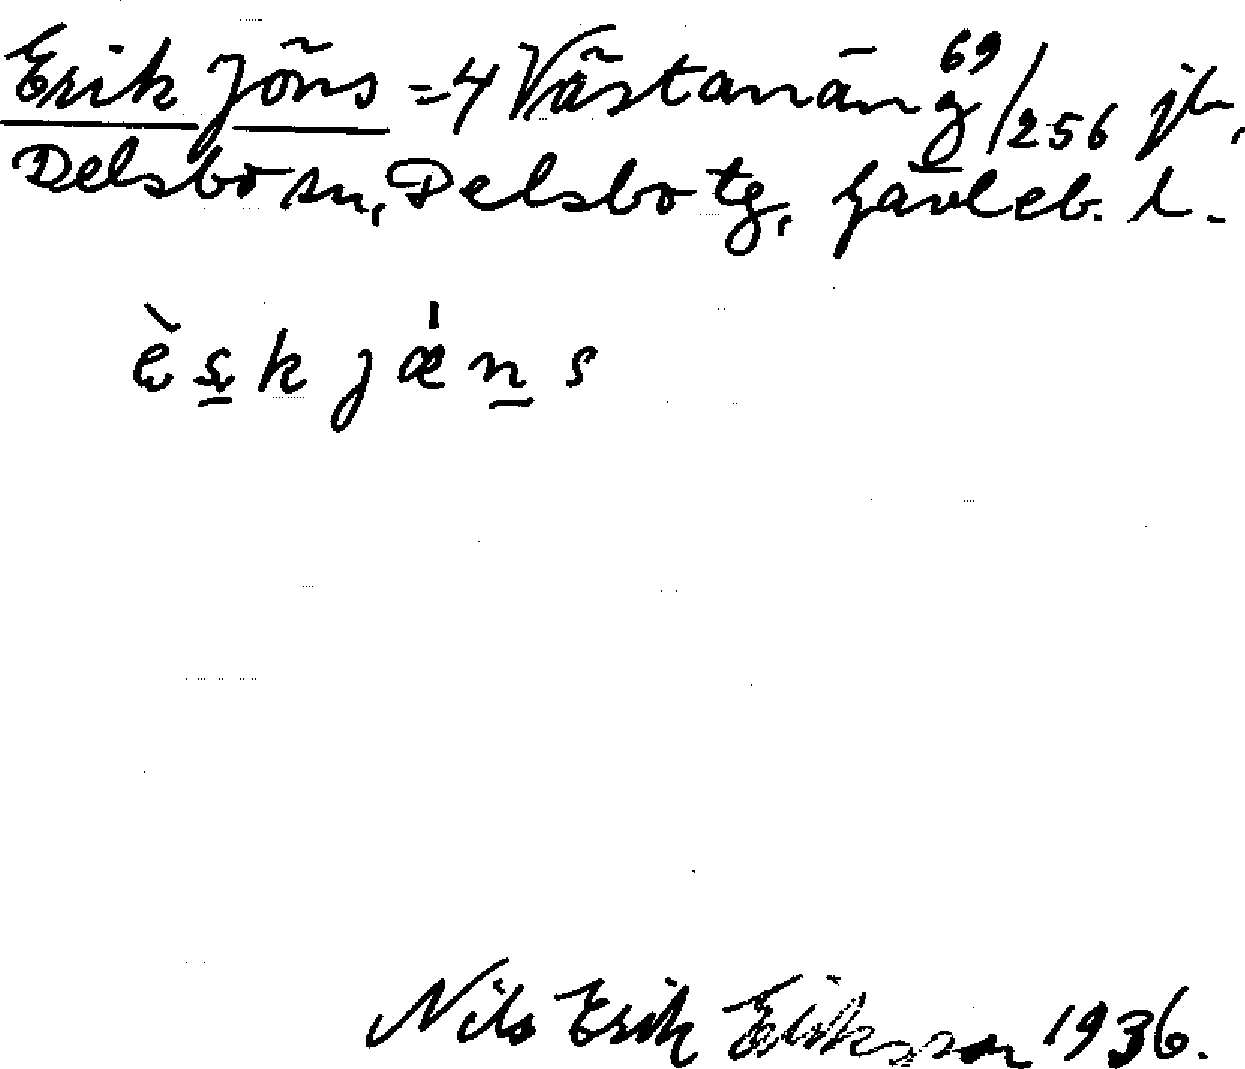 Erik Jöns = 4 Västanäng 69/256 jb,
Delsbo sn, Delsbo tg, Gävleb. l.
è s̲ k j æ̍ n̲ s
Nils Erik Eriksson 1936.